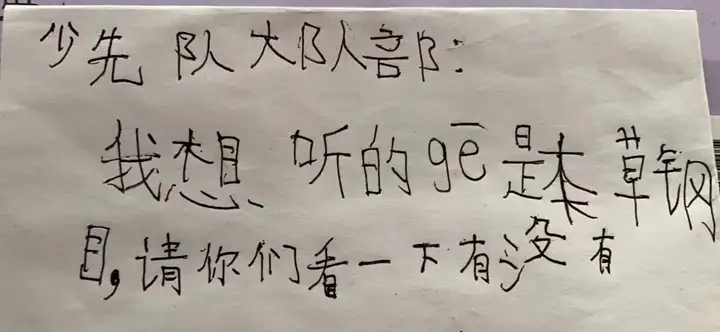 少先队大队部:
我想听的gē是本草钢
目,请你们看一下有没有